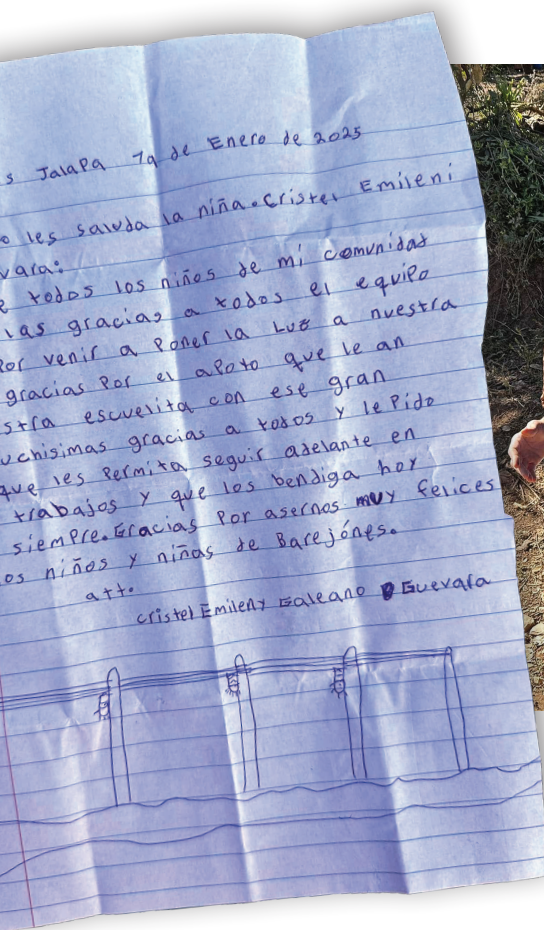 s Jalapa 19 de Enero de 2025
o les saluda la niña. Cristel Emileni
vara:
e todos los niños de mi comunidad
las gracias a todos el equipo
Por venir a Poner la Luz a nuestra
gracias Por el apoto que le an
stra escuelita con ese gran
uchisimas gracias a todos y le Pido
que les Permita seguir adelante en
trabajos y que los bendiga hoy
siempre. Gracias Por asernos muy felices
os niños y niñas de Barejónes.
att.
cristel Emileny Galeano Guevara